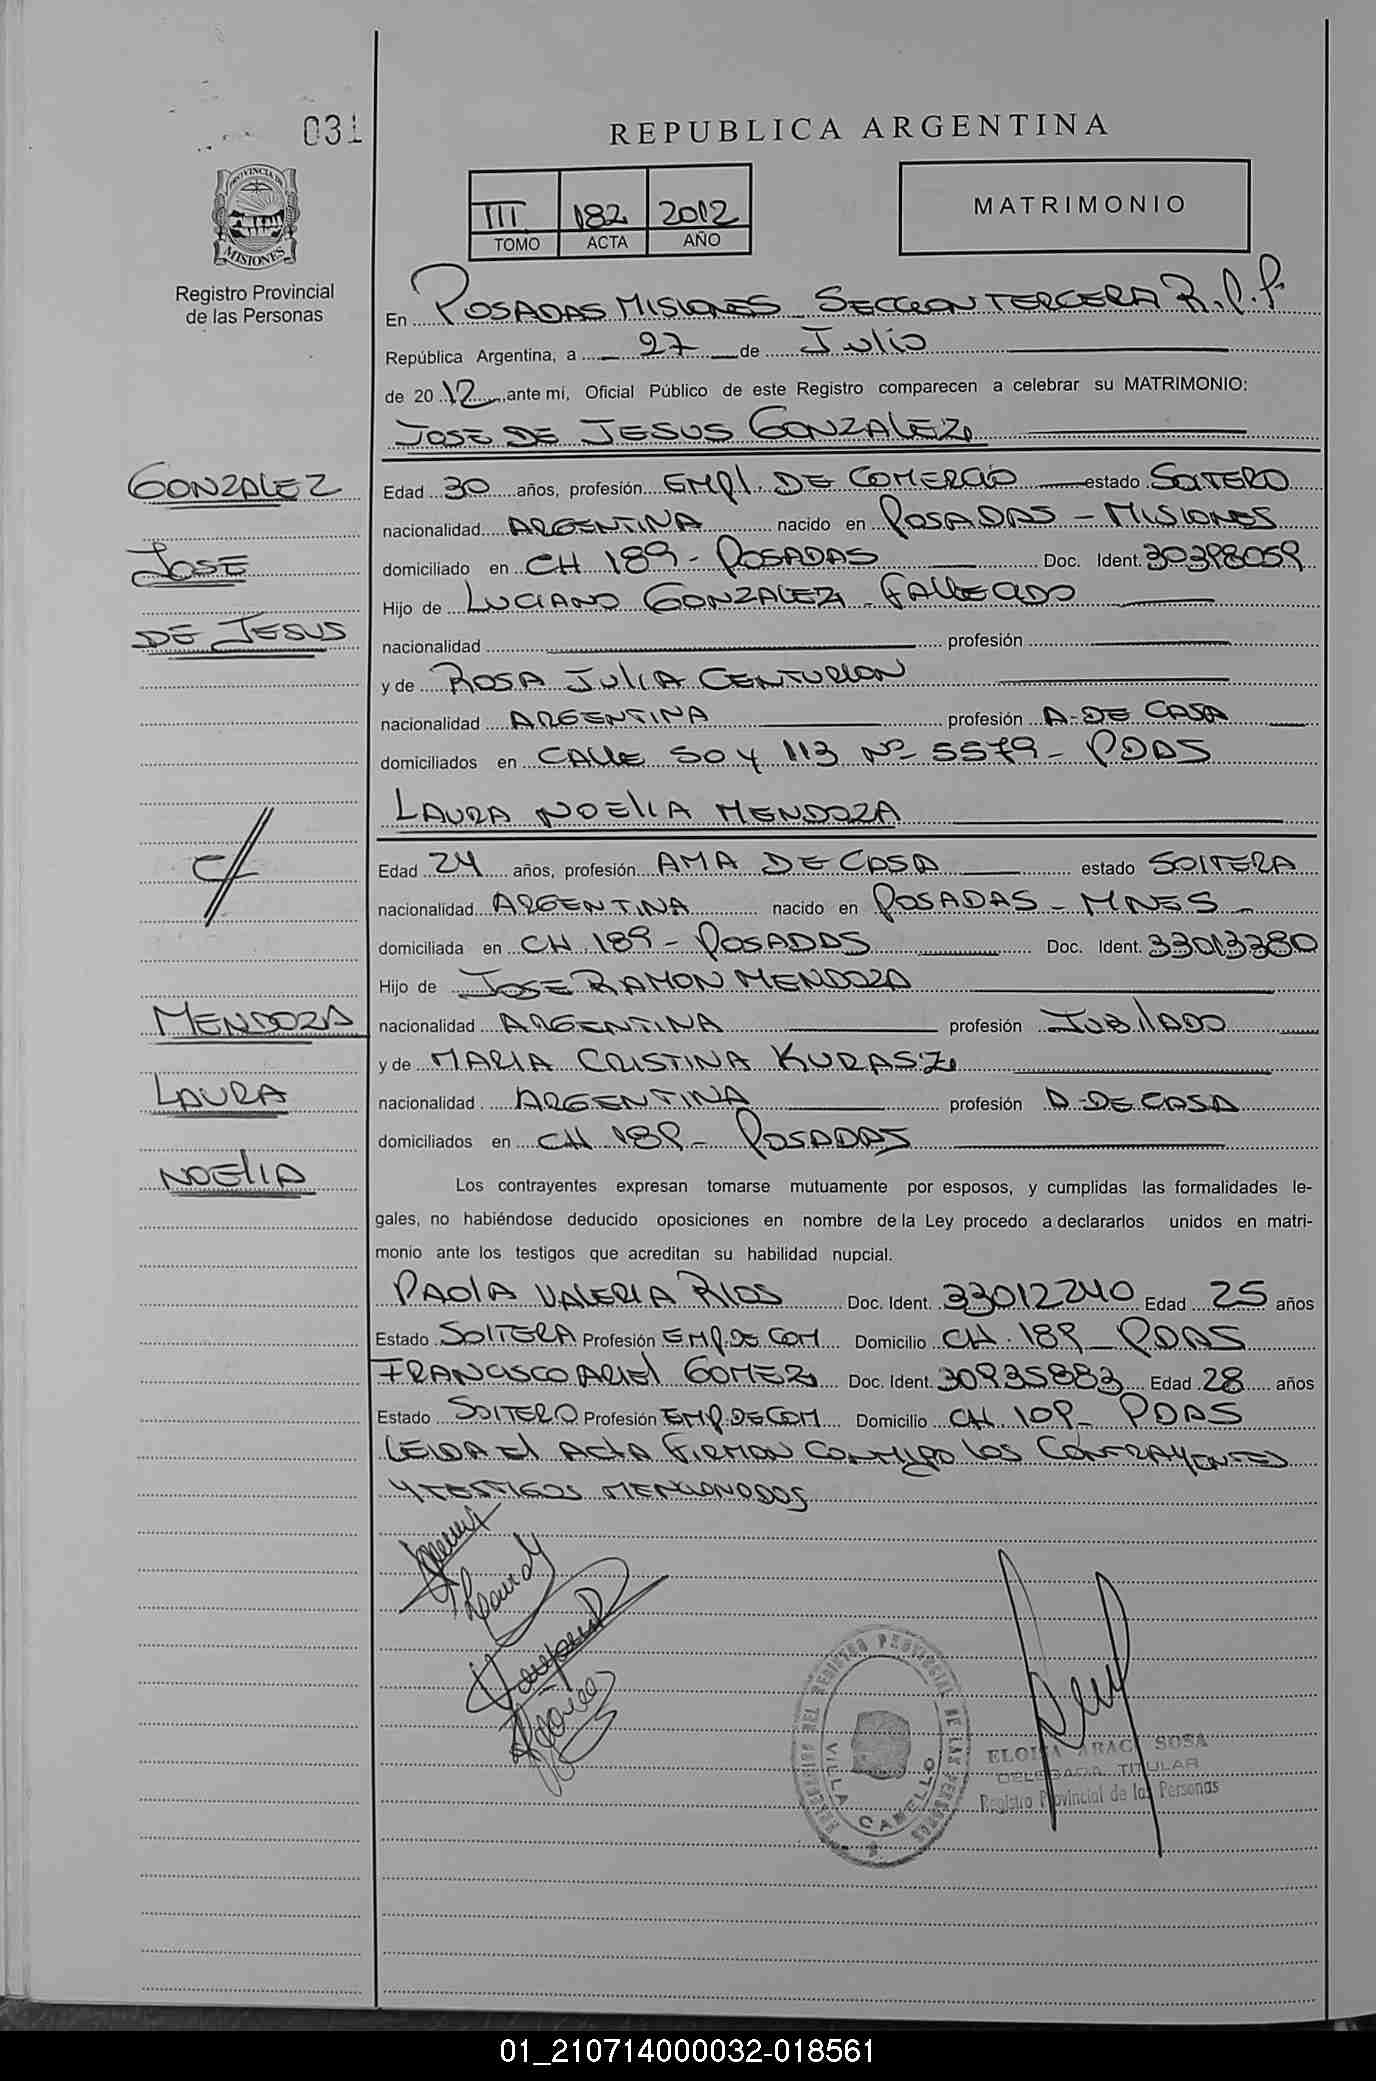 031
REPUBLICA ARGENTINA
PROVINCIA DE
MISIONES
Registro Provincial
de las Personas
III 182 2012
TOMO ACTA AÑO
MATRIMONIO
En POSADAS MISIONES SECCION TERCERA R.P.P.
República Argentina, a 27 de Julio
de 2012 ante mí, Oficial Público de este Registro comparecen a celebrar su MATRIMONIO:
JOSE DE JESUS GONZALEZ
GONZALEZ
JOSE
DE JESUS
Edad 30 años, profesión EMPL. DE COMERCIO estado SOLTERO
nacionalidad ARGENTINA nacido en POSADAS - MISIONES
domiciliado en CH 189 - POSADAS Doc. Ident. 30398059
Hijo de LUCIANO GONZALEZ - FALLECIDO
nacionalidad profesión
y de ROSA JULIA CENTURION
nacionalidad ARGENTINA profesión A. DE CASA
domiciliados en CALLE 50 y 113 Nº 5579 - PDAS
LAURA NOELIA MENDOZA
c/
MENDOZA
LAURA
NOELIA
Edad 24 años, profesión AMA DE CASA estado SOLTERA
nacionalidad ARGENTINA nacido en POSADAS - MNES -
domiciliada en CH. 189 - POSADAS Doc. Ident. 33013380
Hijo de JOSE RAMON MENDOZA
nacionalidad ARGENTINA profesión JUBILADO
y de MARIA CRISTINA KURASZ
nacionalidad ARGENTINA profesión A. DE CASA
domiciliados en CH 189 - POSADAS
Los contrayentes expresan tomarse mutuamente por esposos, y cumplidas las formalidades le-
gales, no habiéndose deducido oposiciones en nombre de la Ley procedo a declararlos unidos en matri-
monio ante los testigos que acreditan su habilidad nupcial.
PAOLA VALERIA RIOS Doc. Ident. 33012240 Edad 25 años
Estado SOLTERA Profesión EMP. DE COM Domicilio CH. 189 - PDAS
FRANCISCO ARIEL GOMEZ Doc. Ident. 30935883 Edad 28 años
Estado SOLTERO Profesión EMP. DE COM Domicilio CH. 109 - PDAS
LEIDA EL ACTA FIRMAN CONMIGO LOS CONTRAYENTES
Y TESTIGOS MENCIONADOS
REGISTRO PROVINCIAL DE LAS PERSONAS
VILLA CABELLO
ELOISA ARACI SOSA
DELEGADA TITULAR
Registro Provincial de las Personas
01_210714000032-018561